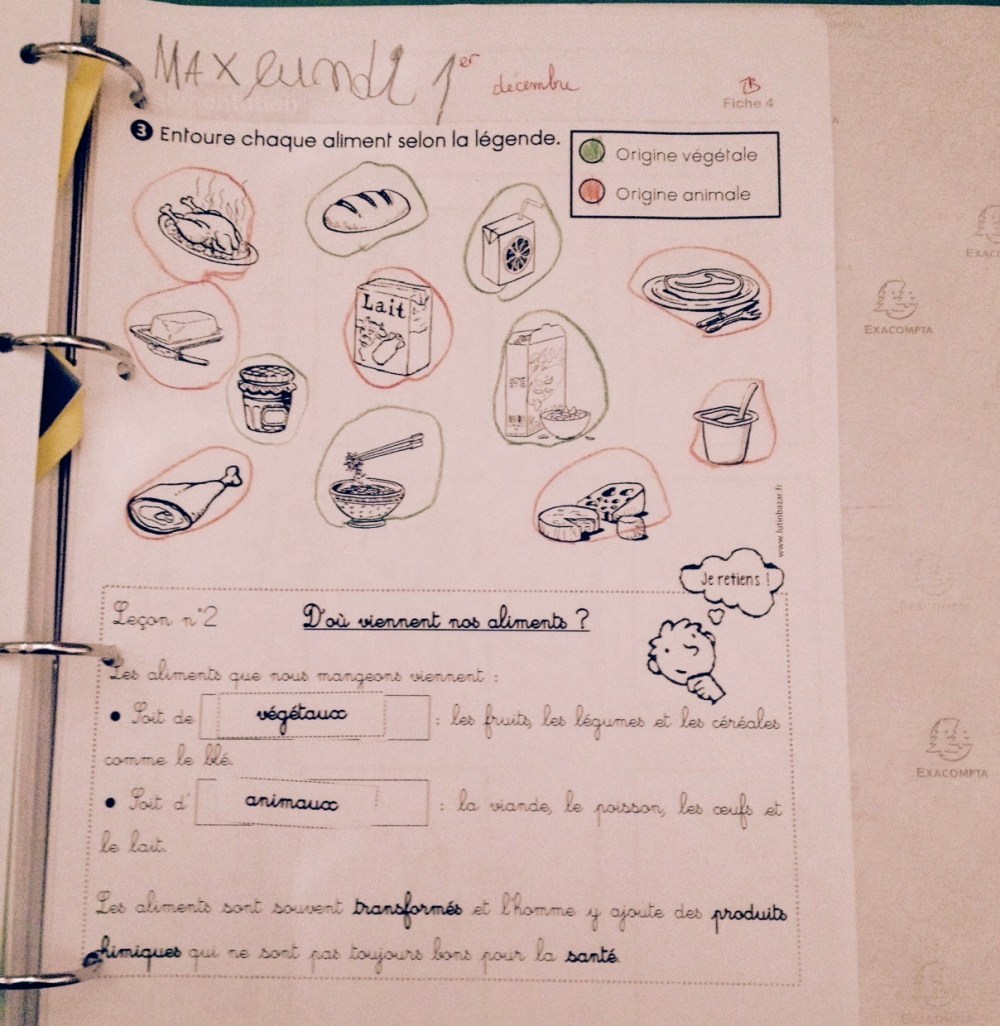 MAX lundi 1er décembre
TB
Fiche 4
3 Entoure chaque aliment selon la légende.
Origine végétale
Origine animale
Lait
www.lutinbazar.fr
Je retiens !
Leçon n°2 D'où viennent nos aliments ?
Les aliments que nous mangeons viennent :
• Soit de végétaux : les fruits, les légumes et les céréales
comme le blé.
• Soit d' animaux : la viande, le poisson, les œufs et
le lait.
Les aliments sont souvent transformés et l'homme y ajoute des produits
himiques qui ne sont pas toujours bons pour la santé.
EXACOMPTA
EXACOMPTA
EXACOMPTA